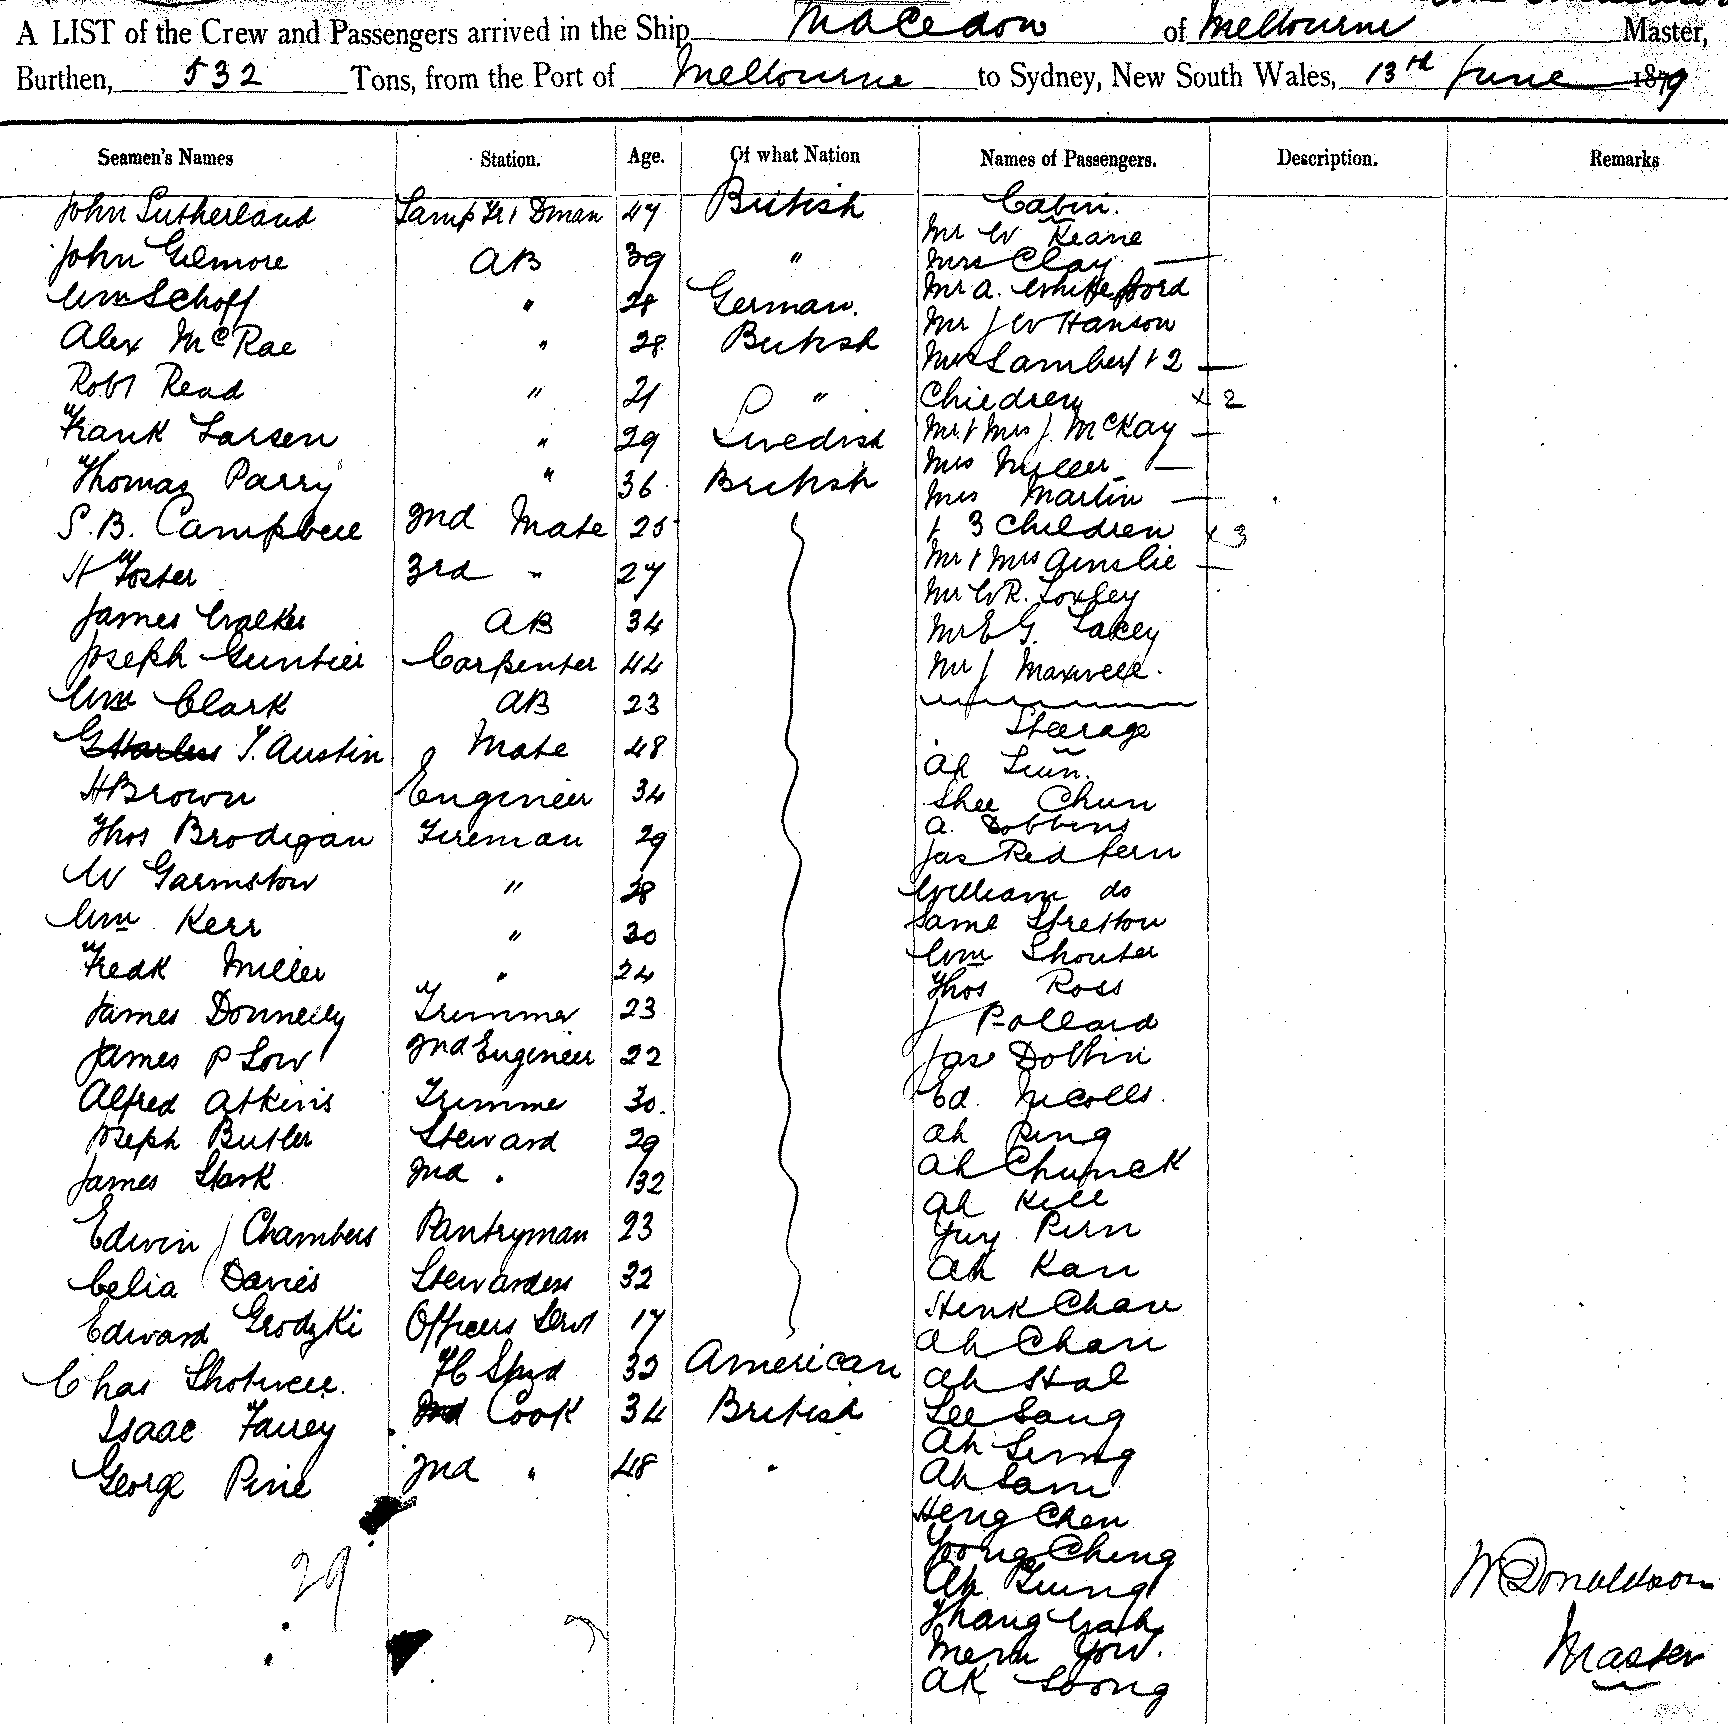 A LIST of the Crew and Passengers arrived in the Ship Macedon of Melbourne Master,
Burthen, 532 Tons, from the Port of Melbourne to Sydney, New South Wales, 13th June 1879
Seamen's Names Station. Age. Of what Nation Names of Passengers. Description. Remarks
John Sutherland Lamp Tr & Dman 47 British
John Gilmore AB 39 "
Wm Schoff " 28 German.
Alex McRae " 28 British
Robt Read " 21 "
Frank Larsen " 29 Swedish
Thomas Parry " 36 British
S. B. Campbell 2nd Mate 25
H Foster 3rd " 27
James Walker AB 34
Joseph Guntier Carpenter 44
Wm Clark AB 23
G T. Austin Mate 48
H Brown Engineer 34
Thos Brodigan Fireman 29
W Garmston " 38
Wm Kerr " 30
Fredk Miller " 24
James Donnelly Trimmer 23
James P Low 2nd Engineer 22
Alfred Atkins Trimmer 30.
Joseph Butler Steward 29
James Stark 2nd " 32
Edwin J Chambers Pantryman 23
Celia Davies Stewardess 32
Edward Grodzki Officers Servt 17
Chas Shotwell. 32 American
Isaac Fairey Cook 34 British
George Pine 2nd " 48 "
29
Cabin.
Mr W Keane
Mrs Clay —
Mr A. Whitefford
Mr J W Hanson
Mrs Lambert & 2 —
Children x 2
Mr & Mrs J. McKay —
Mrs Miller —
Mrs Martin —
& 3 Children x 3
Mr & Mrs Ainslie —
Mr W R. Foxley
Mr E G. Lakey
Mr J Maxwell.
Steerage
Ah Lun.
Shee Chun
A. Dobbins
Jas Redfern
William do
Stretton
Wm Shouter
Thos Ross
J Pollard
Jas Dobbin
Ed. Nicolls.
Ah Ping
Ah Chumck
Ah Kell
Yuy Pun
Ah Kan
Henk Chan
Ah Chan
Ah Hal
Lee Sang
Ah
Ah Sam
Heng Chen
Yoong Ching
Ah
Yow.
Ah Soong
W Donaldson
Master